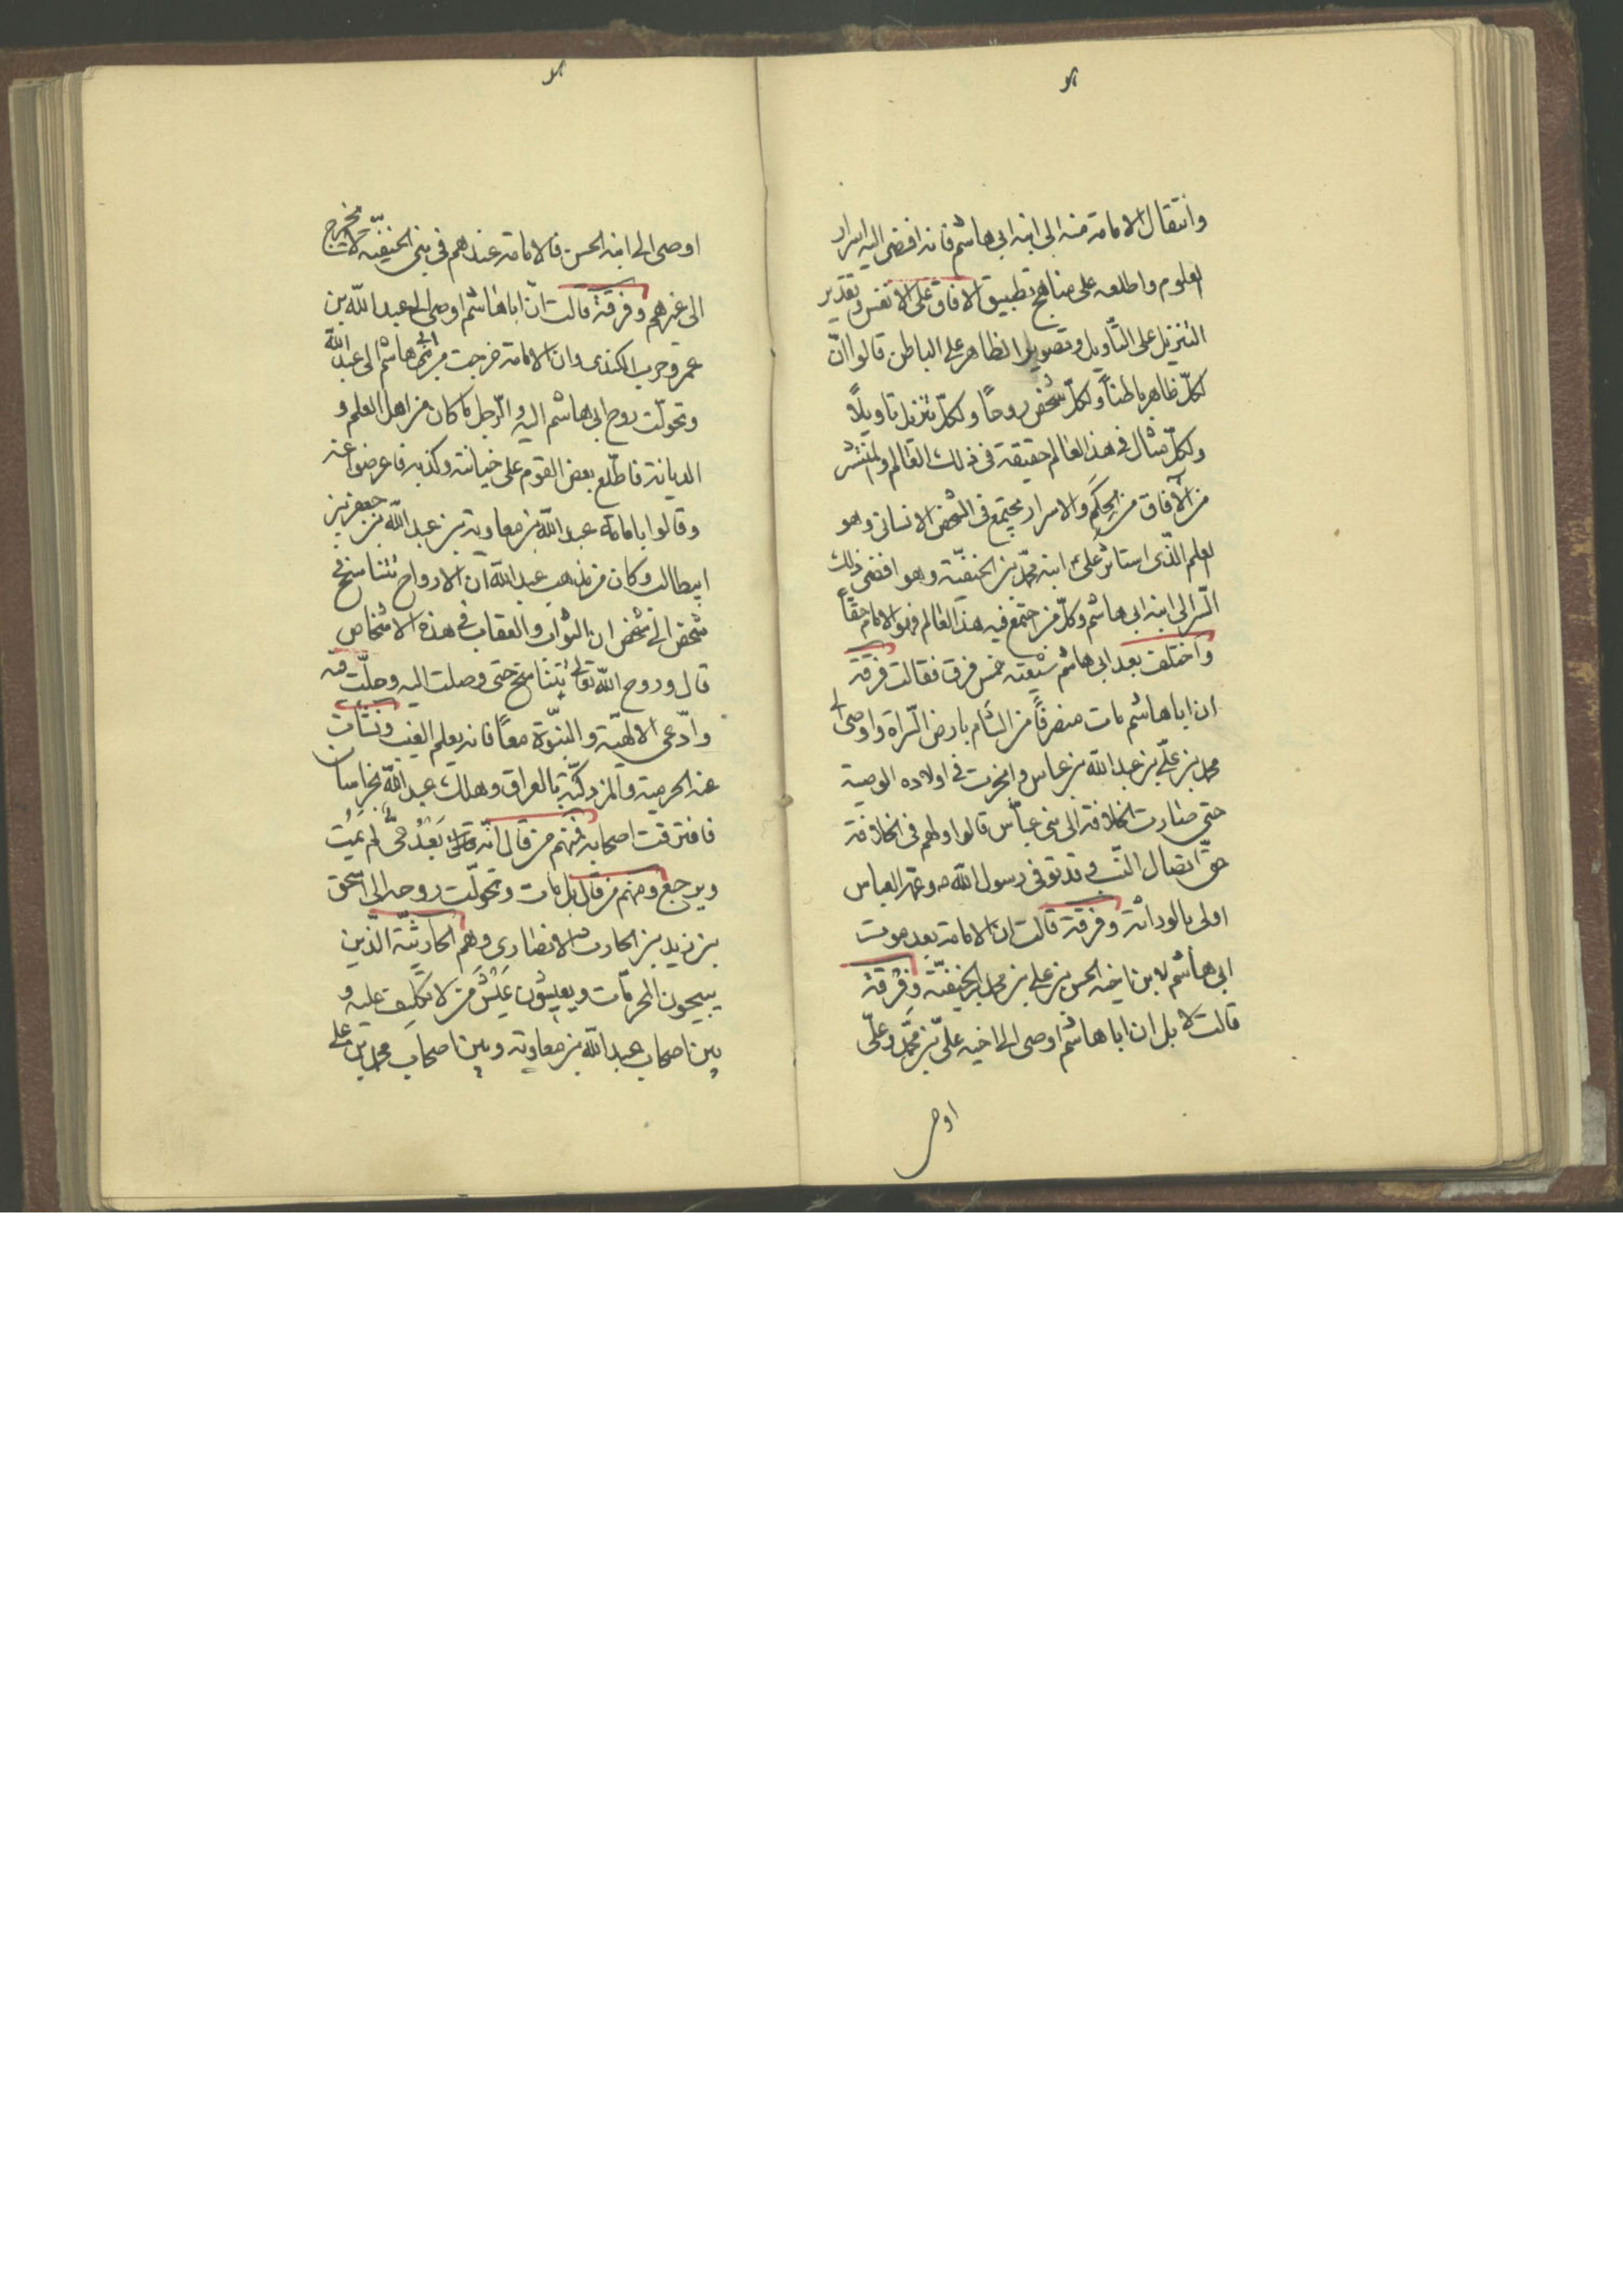 وانتقال الامامة منه الى ابنه ابى هاشم فانه افضى اليه اسرار
العلوم واطلعه على مناهج تطبيق الافاق على الانفس وتقدير
التنزيل على التأويل وتصوير الظاهر على الباطن قالوا انّ
لكلّ ظاهر باطناً ولكلّ شخص روحاً ولكلّ تنزيل تاويلاً
ولكلّ مثال فى هذا العالم حقيقة فى ذلك العالم والمنتشر
من الآفاق من الحِكَم والاسرار مجتمع فى الشخص الانسانى وهو
العلم الّذى استاثر علىّ ابنه محمّد بن الحنفيّة وهو افضى ذلك
السّر الى ابنه ابى هاشم وكلّ من اجتمع فيه هذا العالم فهو الامام حقّاً
واختلف بعد ابى هاشم شيعته خمس فرق فقالت فرقة
ان اباهاشم مات منصرفاً من الشام بارض السّراة واوصى الى
محمد بن علىّ بن عبد الله بن عباس وانجرت فى اولاده الوصية
حتى صارت الخلافة الى بنى عبّاس قالوا ولهم فى الخلافة
حقّ اتصال النّسب وقد توفى رسول الله ص وعمّه العباس
اولى بالوراثة وفرقة قالت ان الامامة بعد موت
ابى هاشم لابن اخيه الحسن بن على بن محمد بن الحنفيّة وفرقة
قالت لا بل ان اباهاشم اوصى الى اخيه علىّ بن محمّد وعلىّ
اوصى
اوصى الى ابنه الحسن فالامامة عندهم فى بنى الحنفيّة لا تخرج
الى غيرهم وفرقة قالت انّ اباهاشم اوصى الى عبد الله بن
عمرو حرب الكندى وان الامامة خرجت من ابى هاشم الى عبد الله
وتحولّت روح ابى هاشم اليه والرّجل ما كان من اهل العلم و
الديانة فاطّلع بعض القوم على خيانته وكذبه فاعرضوا عنه
وقالوا بامامة عبد الله بن معاوية بن عبد الله بن جعفر بن
ابيطالب وكان من مذهب عبد الله ان الارواح تتناسخ فى
شخص الى شخص ان الثواب والعقاب فى هذه الاشخاص
قال وروح الله تعالى تتناسخ حتى وصلت اليه وحلّت فيه
وادّعى الالهيّة والنبّوة معاً فانه يعلم الغيب ونشأت
عنه الخرمية والمزدكيّة بالعراق وهلك عبد الله بخراسان
فافترقت اصحابه فمنهم من قال انّه بَعْدُ حىّ لم يَمُت
ويرجع ومنهم من قال بل مات وتحولّت روحه الى اسحق
بن زيد بن الحارث الانصارى وهم الحارثيّة الّذين
يبيحون المحرمّات ويعيشون عَيْشَ من لا تكليف عليه و
بين اصحاب عبد الله بن معاوية وبين اصحاب محمد بن على